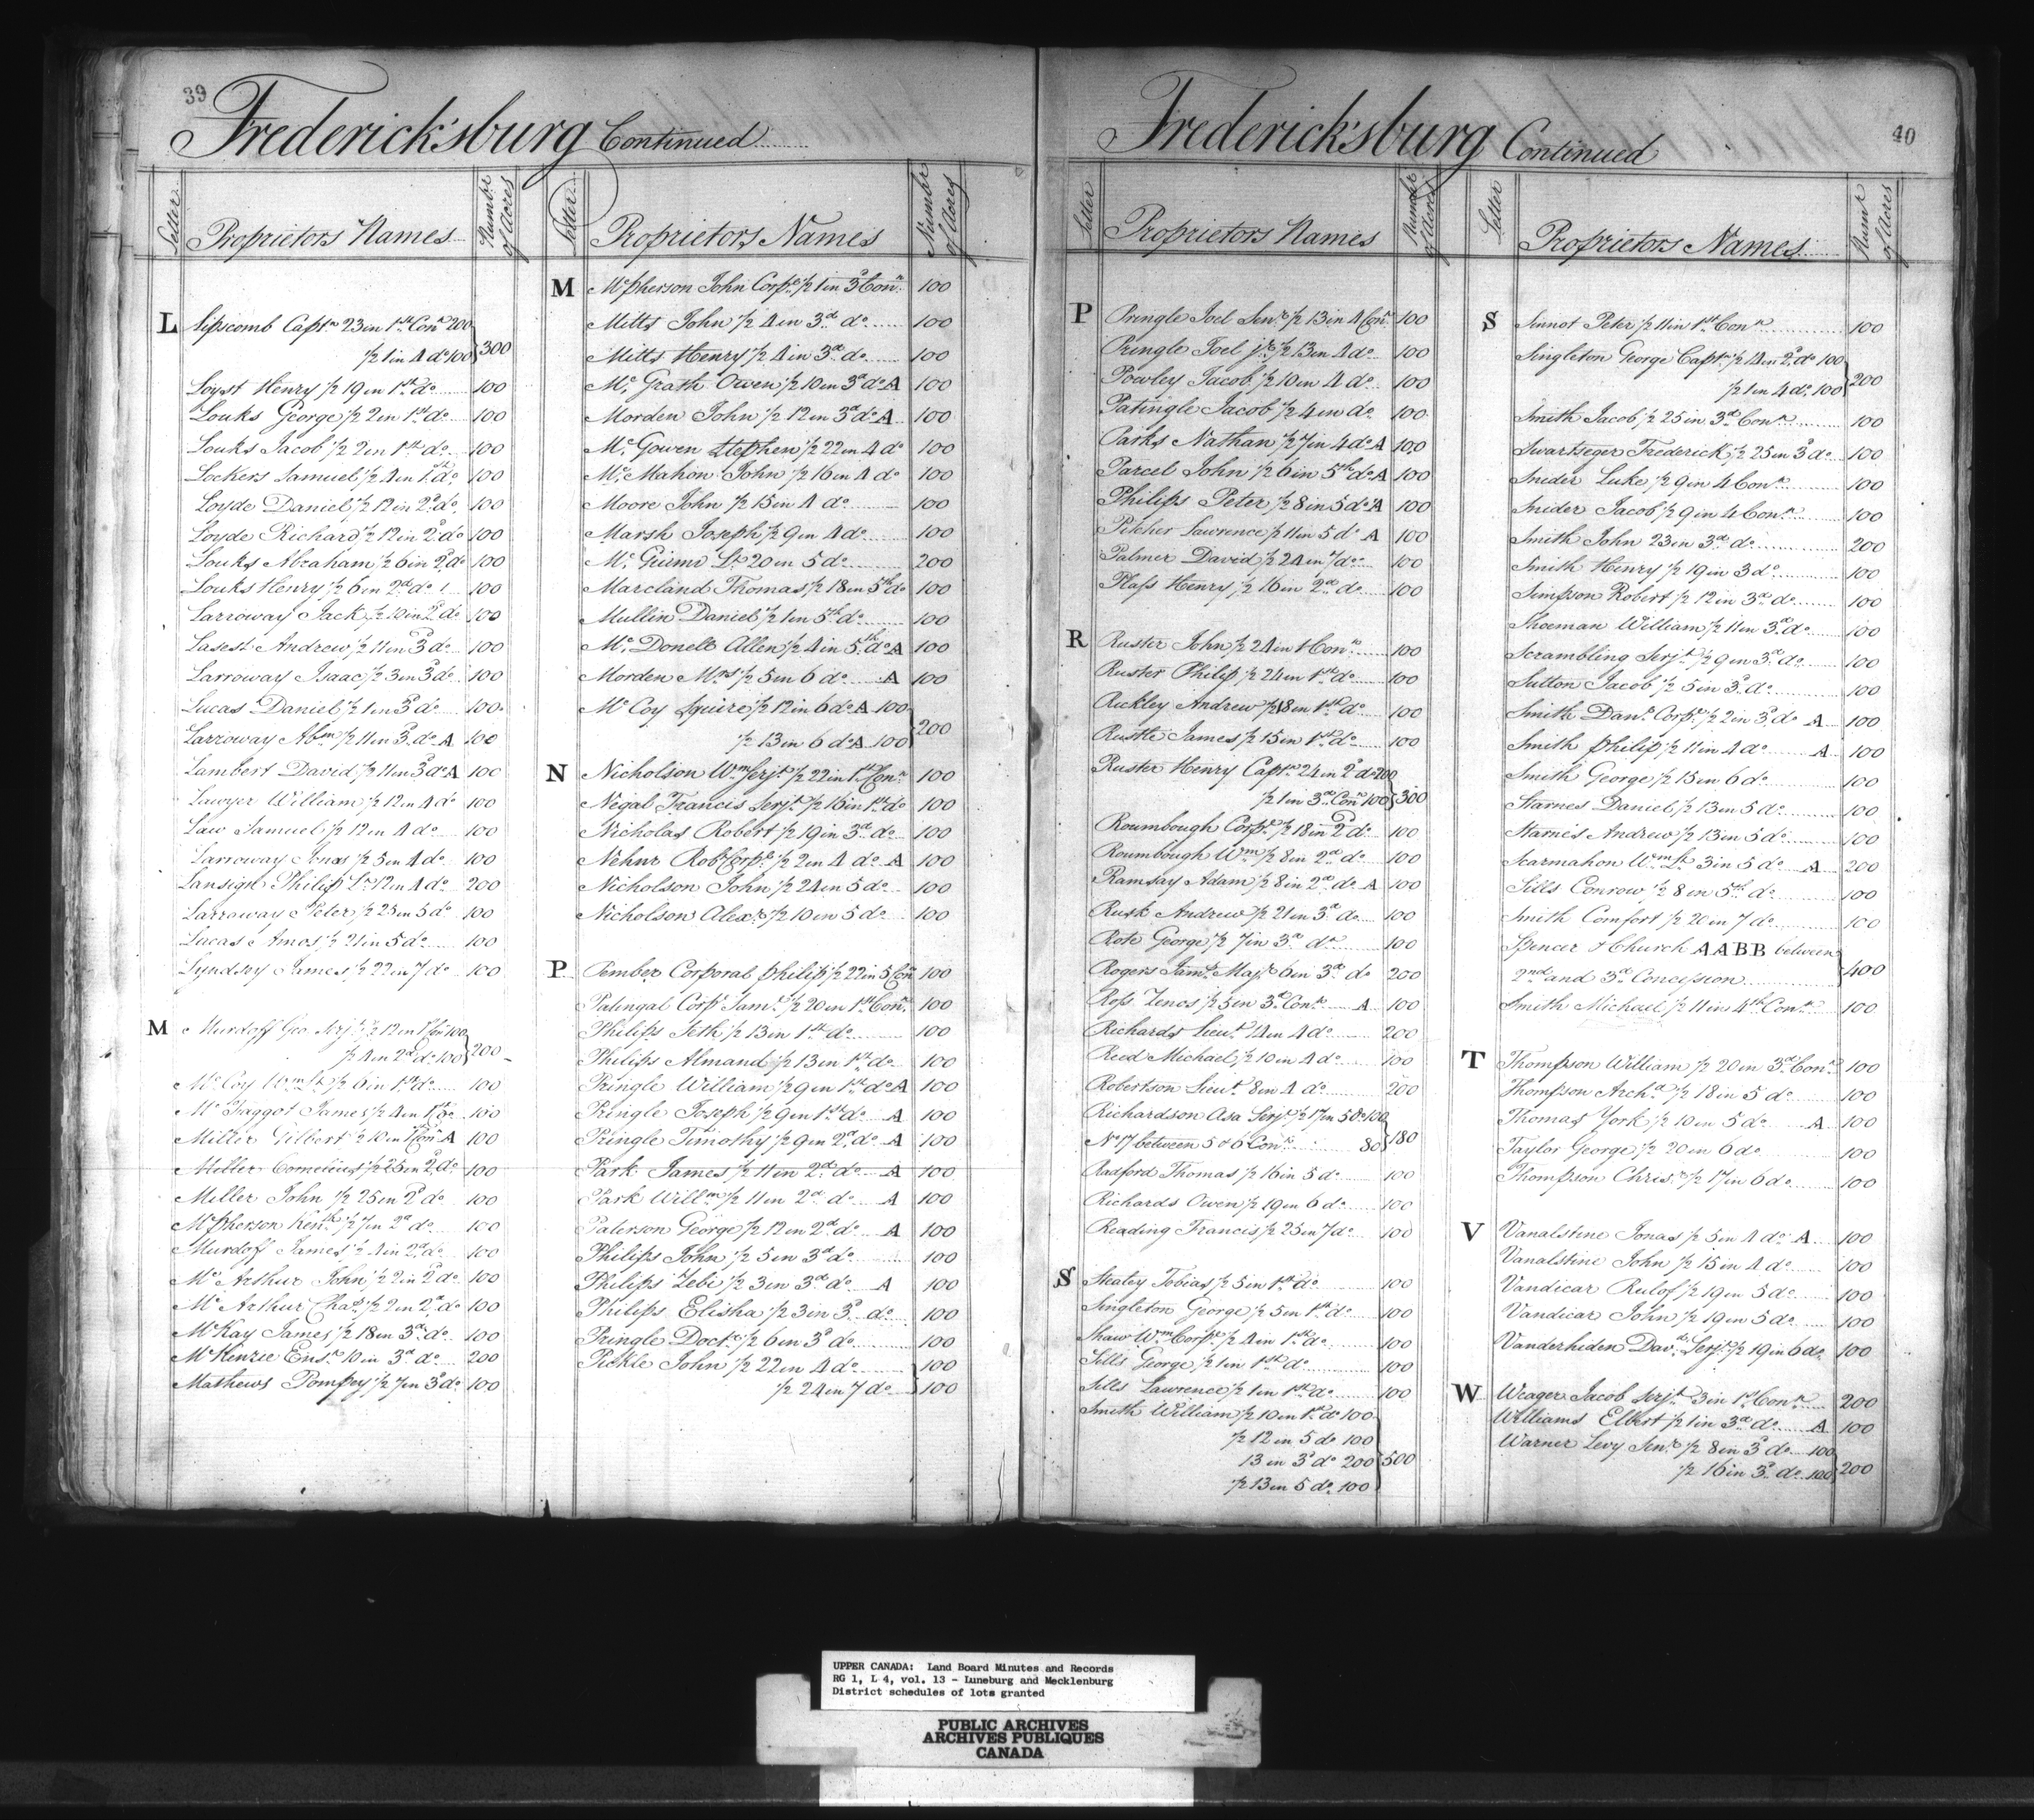 39
Frederick'sburg Continued
Letter
Proprietors Names
Number of Acres
L Lipscomb Captn 23 in 1st Conn 200
½ 1 in 4 do 100 } 300
Loyst Henry ½ 19 in 1st do 100
Louks George ½ 2 in 1st do 100
Louks Jacob ½ 2 in 1st do 100
Lockers Samuel ½ 4 in 1st do 100
Loyde Daniel ½ 12 in 2d do 100
Loyde Richard ½ 12 in 2d do 100
Louks Abraham ½ 6 in 2d do 100
Louks Henry ½ 6 in 2d do 100
Larroway Jack ½ 10 in 2d do 100
Lasest Andrew ½ 11 in 3d do 100
Larroway Isaac ½ 3 in 3d do 100
Lucas Daniel ½ 1 in 3d do 100
Larroway Abm ½ 11 in 3d do A 100
Lambert David ½ 11 in 3d do A 100
Lawyer William ½ 12 in 4 do 100
Law Samuel ½ 12 in 4 do 100
Larroway Jonas ½ 5 in 4 do 100
Lansign Philip Lt 12 in 4 do 200
Larroway Peter ½ 25 in 5 do 100
Lucas Amos ½ 21 in 5 do 100
Lyndsey James ½ 22 in 7 do 100
M Murdoff Geo. Serjt ½ 12 in 1st Con 100
½ 4 in 2d do 100 } 200
Mc Coy Wm Lt ½ 6 in 1st do 100
Mc Taggot James ½ 4 in 1st do 100
Miller Gilbert ½ 10 in 1st Con A 100
Miller Cornelius ½ 25 in 2d do 100
Miller John ½ 25 in 2d do 100
Mcpherson Kenth ½ 7 in 2d do 100
Murdoff James ½ 4 in 2d do 100
Mc Arthur John ½ 2 in 2d do 100
Mc Arthur Chas ½ 2 in 2d do 100
McKay James ½ 18 in 3d do 100
McKenzie Ensn 10 in 3d do 200
Mathews Pomfrey ½ 7 in 3d do 100
Letter
Proprietors Names
Number of Acres
M Mcpherson John Corpl ½ 1 in 3d Conn 100
Mitts John ½ 4 in 3d do 100
Mitts Henry ½ 4 in 3d do 100
Mc Grath Owen ½ 10 in 3d do A 100
Morden John ½ 12 in 3d do A 100
Mc Gowen Stephen ½ 22 in 4 do 100
Mc Mahon John ½ 16 in 4 do 100
Moore John ½ 15 in 4 do 100
Marsh Joseph ½ 9 in 4 do 100
Mc Guinn Lt 20 in 5 do 200
Marcland Thomas ½ 18 in 5th do 100
Mullin Daniel ½ 1 in 5th do 100
Mc Donell Allen ½ 4 in 5th do A 100
Morden Mrs ½ 5 in 6 do A 100
Mc Coy Squire ½ 12 in 6 do A 100
½ 13 in 6 do A 100 } 200
N Nicholson Wm Serjt ½ 22 in 1st Conn 100
Negal Francis Serjt ½ 16 in 1st do 100
Nicholas Robert ½ 19 in 3d do 100
Nehur Robt Corpl ½ 2 in 4 do A 100
Nicholson John ½ 24 in 5 do 100
Nicholson Alexr ½ 10 in 5 do 100
P Pember Corporal philip ½ 22 in 5 Con 100
Patengal Corpl Saml ½ 20 in 1st Conn 100
Philips Seth ½ 13 in 1st do 100
Philips Almand ½ 13 in 1st do 100
Pringle William ½ 9 in 1st do A 100
Pringle Joseph ½ 9 in 1st do A 100
Pringle Timothy ½ 9 in 2d do A 100
Park James ½ 11 in 2d do A 100
Park Willm ½ 11 in 2d do A 100
Paterson George ½ 12 in 2d do A 100
Philips John ½ 5 in 3d do 100
Philips Zebi ½ 3 in 3d do A 100
Philips Elisha ½ 3 in 3d do 100
Pringle Doctr ½ 6 in 3d do 100
Pickle John ½ 22 in 4 do 100
½ 24 in 7 do 100
40
Frederick'sburg Continued
Letter
Proprietors Names
Number of Acres
P Pringle Joel Senr ½ 13 in 4 Conn 100
Pringle Joel jr ½ 13 in 4 do 100
Powley Jacob ½ 10 in 4 do 100
Patingle Jacob ½ 4 in do 100
Parks Nathan ½ 7 in 4 do A 100
Parcel John ½ 6 in 5th do A 100
Philips Peter ½ 8 in 5 do A 100
Pitcher Lawrence ½ 11 in 5 do A 100
Palmer David ½ 24 in 7 do 100
Plass Henry ½ 16 in 2d do 100
R Ruster John ½ 24 in 1 Conn 100
Ruster Philip ½ 24 in 1st do 100
Rickley Andrew ½ 18 in 1st do 100
Rustle James ½ 15 in 1st do 100
Ruster Henry Captn 24 in 2d do 200
½ 1 in 3d Conn 100 } 300
Roumbough Corpl ½ 18 in 2d do 100
Roumbough Wm ½ 8 in 2d do 100
Ramsay Adam ½ 8 in 2d do A 100
Rusk Andrew ½ 21 in 3d do 100
Rote George ½ 7 in 3d do 100
Rogers Jams Majr 6 in 3d do 200
Ross Zenos ½ 5 in 3d Conn A 100
Richards Lieut 14 in 4 do 200
Reed Michael ½ 10 in 4 do 100
Robertson Lieut 8 in 4 do 200
Richardson Asa Serjt ½ 17 in 5 do 100
No 17 between 5 & 6 Conn 80 } 180
Radford Thomas ½ 16 in 5 do 100
Richards Owen ½ 19 in 6 do 100
Reading Francis ½ 25 in 7 do 100
S Stealey Tobias ½ 5 in 1st do 100
Singleton George ½ 5 in 1st do 100
Shaw Wm Corpl ½ 4 in 1st do 100
Sills George ½ 1 in 1st do 100
Sills Lawrence ½ 1 in 1st do 100
Smith William ½ 10 in 1st do 100
½ 12 in 5 do 100
13 in 3d do 200 } 500
½ 13 in 5 do 100
Letter
Proprietors Names
Numr of Acres
S Sinnot Peter ½ 11 in 1st Conn 100
Singleton George Captn ½ 14 in 2d do 100
½ 1 in 4 do 100 } 200
Smith Jacob ½ 25 in 3d Conn 100
Swartseger Frederick ½ 25 in 3 do 100
Snider Luke ½ 9 in 4 Conn 100
Snider Jacob ½ 9 in 4 Conn 100
Smith John 23 in 3d do 200
Smith Henry ½ 19 in 3 do 100
Simpson Robert ½ 12 in 3d do 100
Shoeman William ½ 11 in 3d do 100
Scrambling Serjt ½ 9 in 3d do 100
Sutton Jacob ½ 5 in 3d do 100
Smith Danl Corpl ½ 2 in 3d do A 100
Smith philip ½ 11 in 4 do A 100
Smith George ½ 15 in 6 do 100
Starnes Daniel ½ 13 in 5 do 100
Starnes Andrew ½ 13 in 5 do 100
Scarmahon Wm Lt 3 in 5 do A 200
Sills Conrow ½ 8 in 5th do 100
Smith Comfort ½ 20 in 7 do 100
Spencer & Church A A B B between
2nd and 3d Concession } 400
Smith Michael ½ 11 in 4th Conn 100
T Thompson William ½ 20 in 3d Conn 100
Thompson Archd ½ 18 in 5 do 100
Thomas York ½ 10 in 5 do A 100
Taylor George ½ 20 in 6 do 100
Thompson Chrisr ½ 17 in 6 do 100
V Vanalstine Jonas ½ 5 in 4 do A 100
Vanalstine John ½ 15 in 4 do 100
Vandicar Rulof ½ 19 in 5 do 100
Vandicar John ½ 19 in 5 do 100
Vanderhiden Davd Serjt ½ 19 in 6 do 100
W Weager Jacob Serjt 3 in 1st Conn 200
Williams Elbert ½ 1 in 3d do A 100
Warner Levy Senr ½ 8 in 3d do 100
½ 16 in 3d do 100 } 200
UPPER CANADA: Land Board Minutes and Records
RG 1, L 4, vol. 13 - Luneburg and Mecklenburg
District schedules of lots granted
PUBLIC ARCHIVES
ARCHIVES PUBLIQUES
CANADA